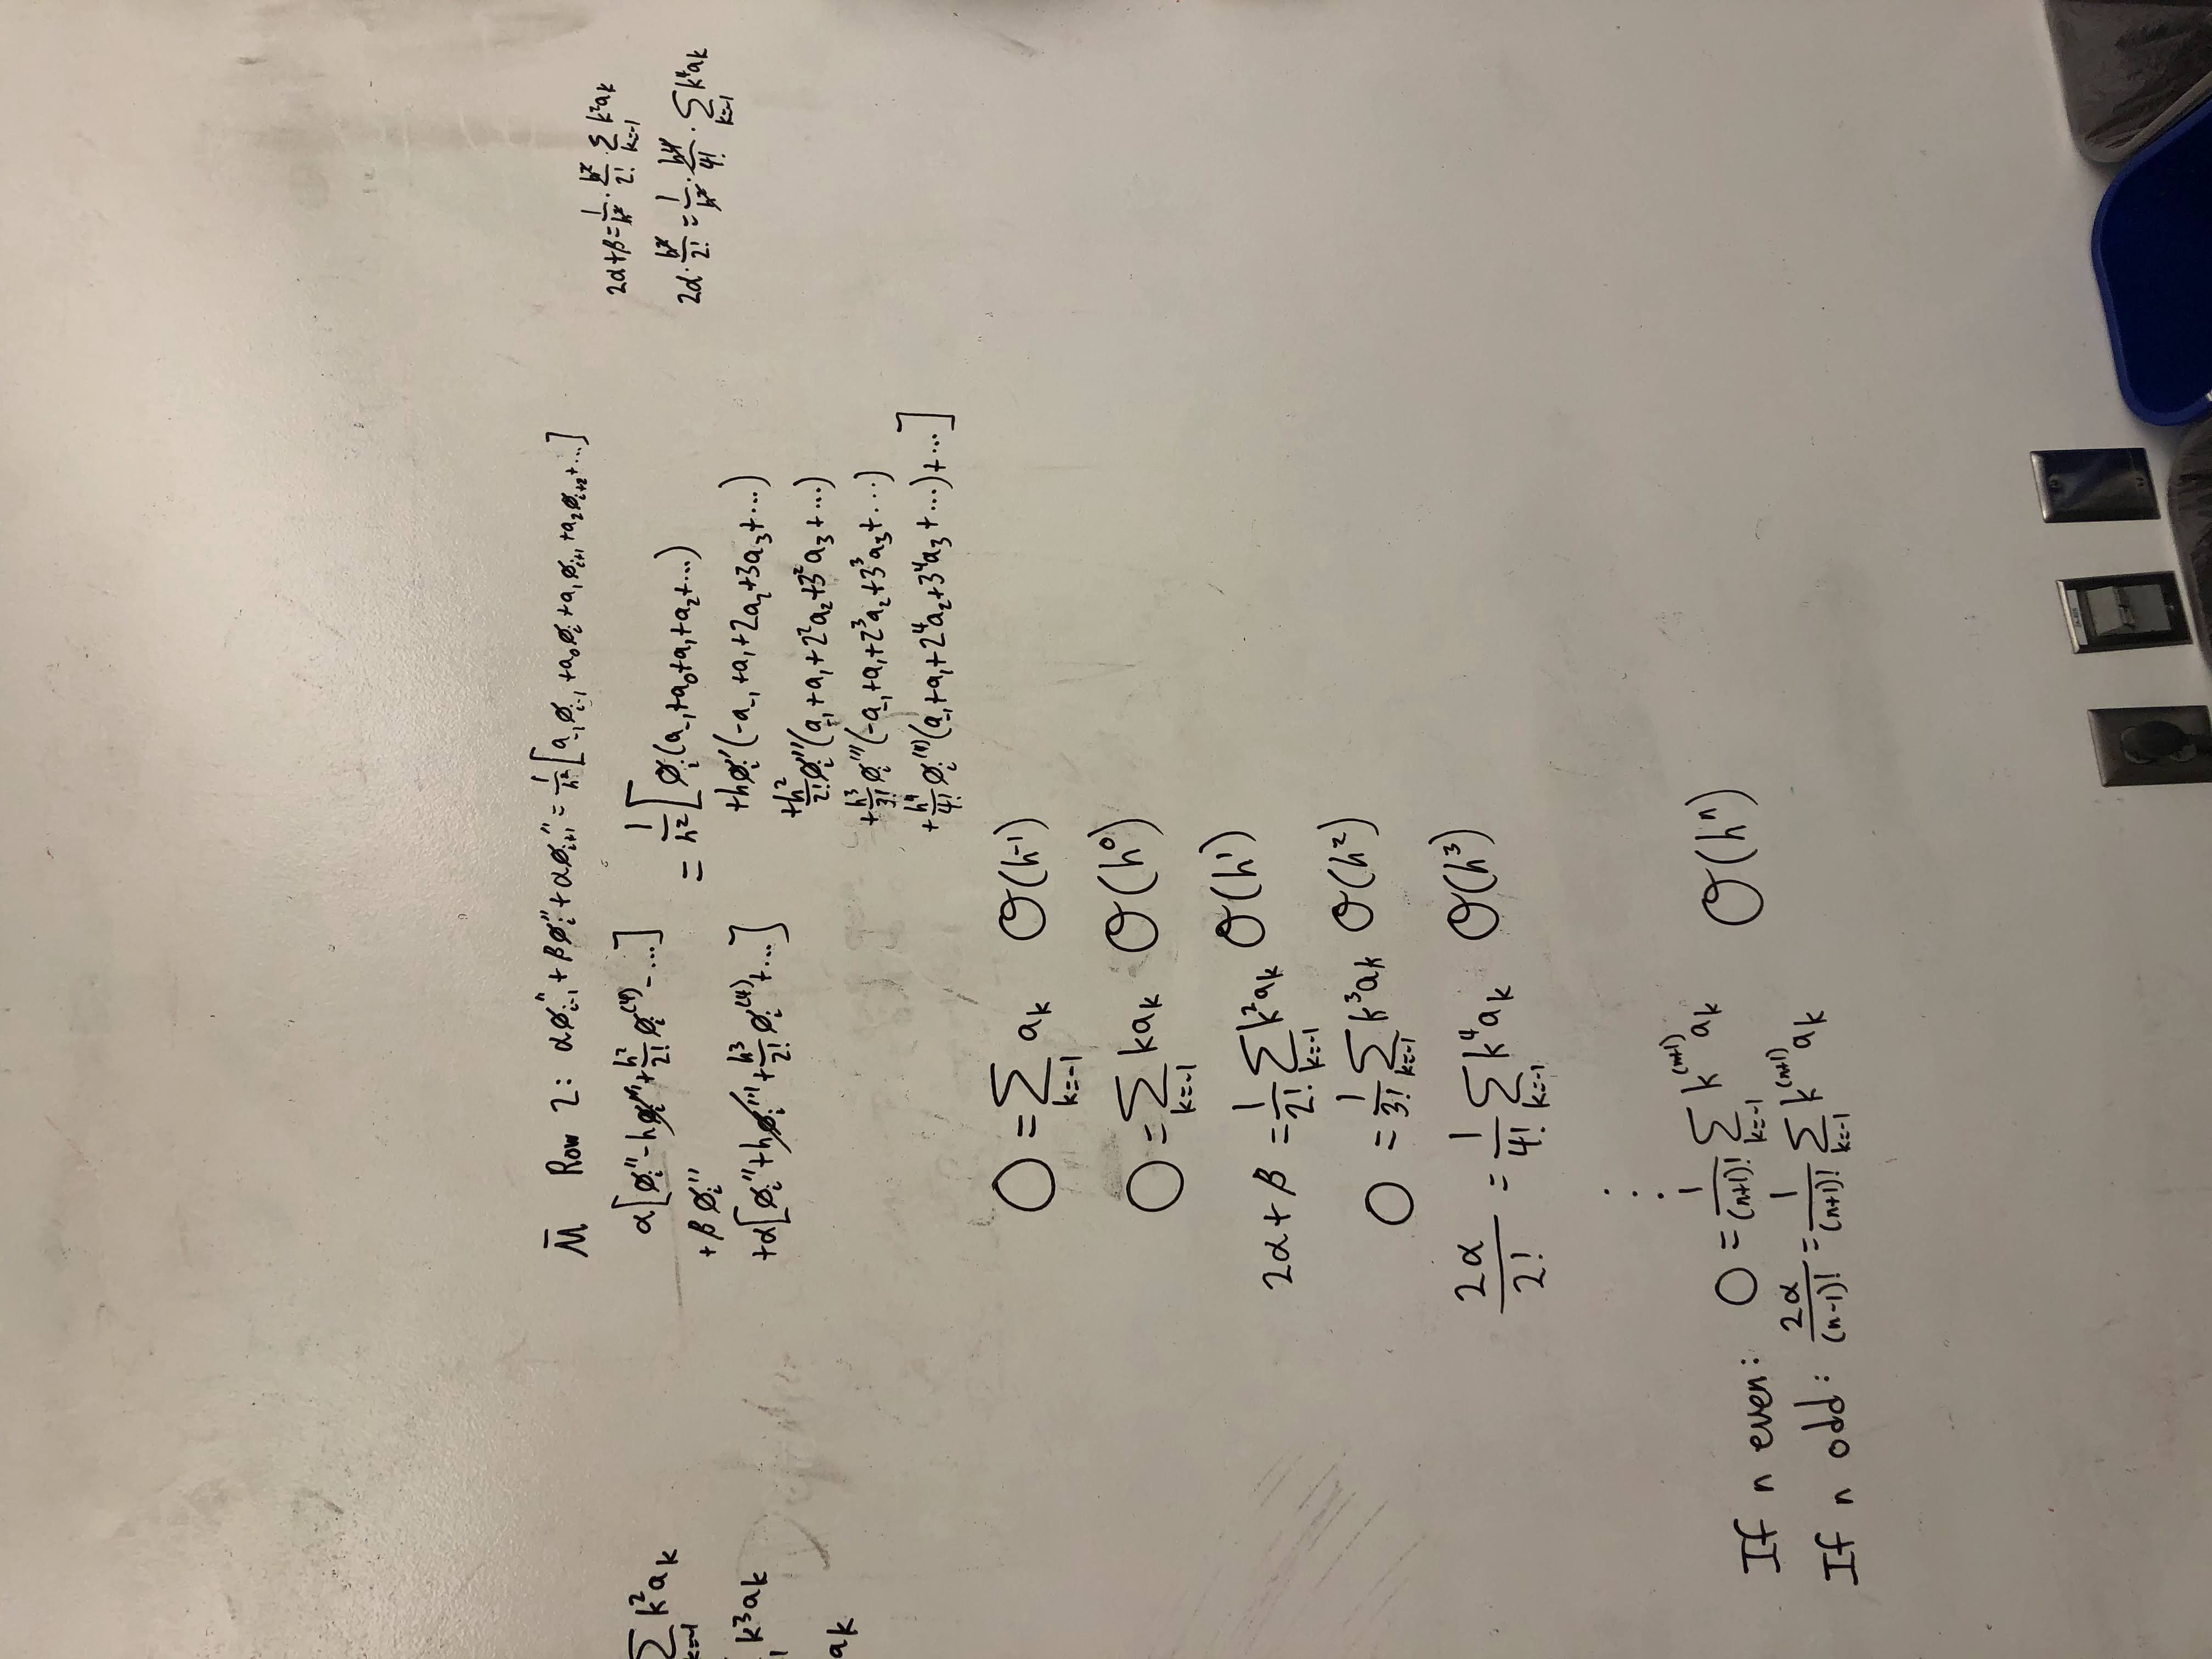 M̄ Row 2: αφ''ᵢ₋₁ + βφ''ᵢ + αφ''ᵢ₊₁ = 1/h² [a₋₁φᵢ₋₁ + a₀φᵢ + a₁φᵢ₊₁ + a₂φᵢ₊₂ + ...]
α[φᵢ'' - hφᵢ''' + h²/2! φᵢ⁽⁴⁾ - ...]
+ βφᵢ''
+α[φᵢ'' + hφᵢ''' + h³/2! φᵢ⁽⁴⁾ + ...]
= 1/h² [φᵢ(a₋₁ + a₀ + a₁ + a₂ + ...)
+hφᵢ'(-a₋₁ + a₁ + 2a₂ + 3a₃ + ...)
+h²/2! φᵢ'''(a₋₁ + a₁ + 2²a₂ + 3²a₃ + ...)
+h³/3! φᵢ'''(-a₋₁ + a₁ + 2³a₂ + 3³a₃ + ...)
+h⁴/4! φᵢ⁽⁴⁾(a₋₁ + a₁ + 2⁴a₂ + 3⁴a₃ + ...) + ...]
2α+β = 1/h² · h²/2! · Σ_{k=-1} k²aₖ
2α · h²/2! = 1/h² · h⁴/4! · Σ_{k=-1} k⁴aₖ
Σ_{k=-1} k²aₖ
k³aₖ
aₖ
0 = Σ_{k=-1} aₖ O(h⁻¹)
0 = Σ_{k=-1} kaₖ O(h⁰)
2α + β = 1/2! Σ_{k=-1} k²aₖ O(h¹)
0 = 1/3! Σ_{k=-1} k³aₖ O(h²)
2α/2! = 1/4! Σ_{k=-1} k⁴aₖ O(h³)
⋮
If n even: 0 = 1/(n+1)! Σ_{k=-1} k⁽ⁿ⁺¹⁾aₖ O(hⁿ)
If n odd: 2α/(n-1)! = 1/(n+1)! Σ_{k=-1} k⁽ⁿ⁺¹⁾aₖ